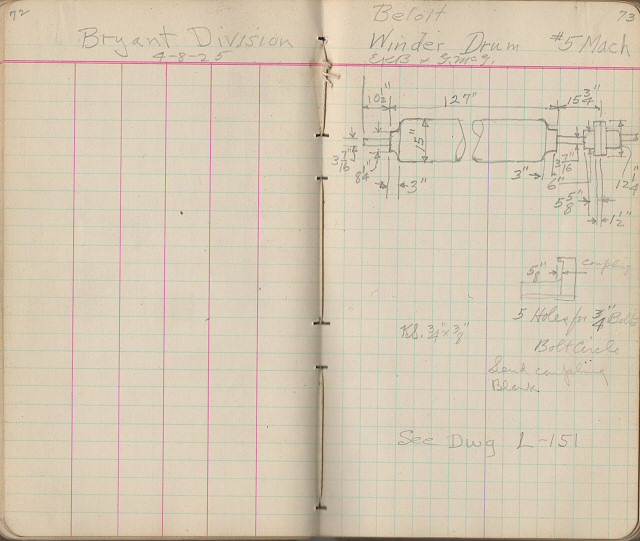 72
Bryant Division
4-8-25
73
Beloit
Winder Drum #5 Mach
10 1/2" 127" 15 3/4"
15"
3 7/16" 8 1/4" 3"
3" 3 7/16" 6" 5 5/8" 12 1/4"
1 1/2"
5/8" coupling
5 Holes for 3/4" Bolt
Bolt Circle
K.S. 3/4" x 3/8"
Send coupling
Blank
See Dwg L-151